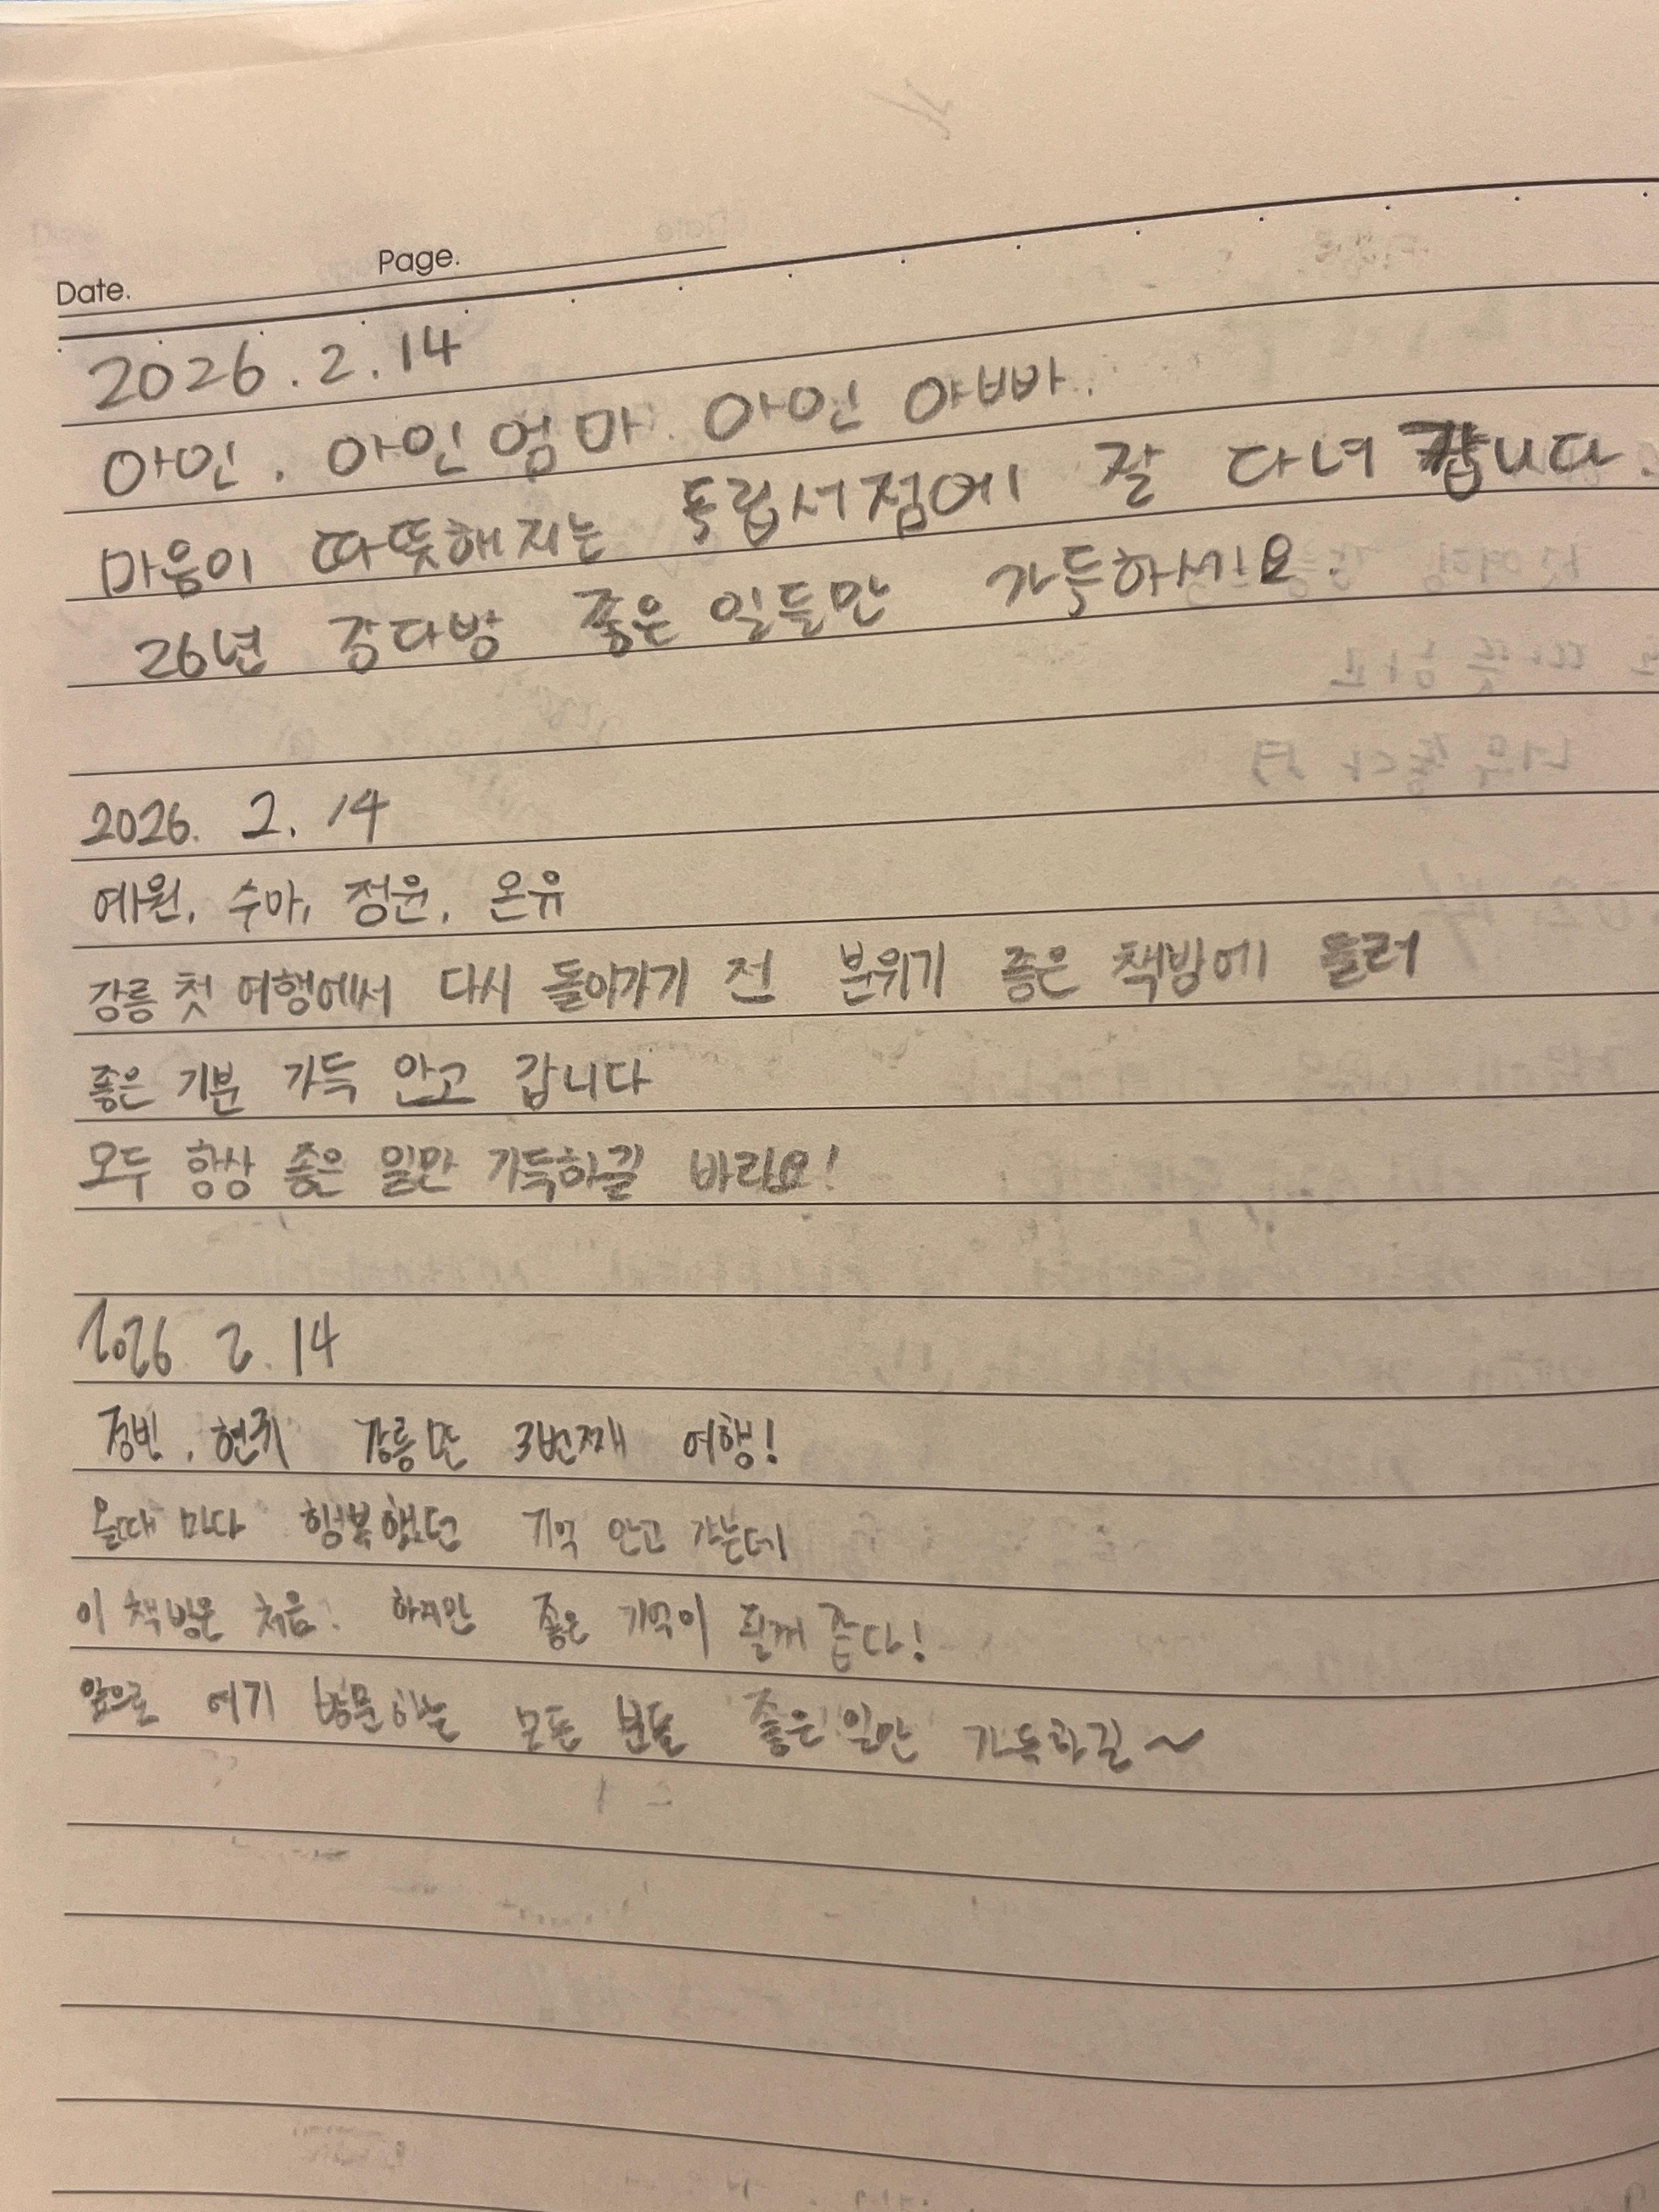 Date.
Page.
2026. 2. 14
아인. 아인엄마. 아인 아빠.
마음이 따뜻해지는 독립서점에 잘 다녀 갑니다.
26년 강다방 좋은 일들만 가득하세요.
2026. 2. 14
예원, 수아, 정윤, 온유
강릉 첫 여행에서 다시 돌아가기 전 분위기 좋은 책방에 들러
좋은 기분 가득 안고 갑니다
모두 항상 좋은 일만 가득하길 바라요!
2026 2. 14
정빈, 현쥐 강릉만 3번째 여행!
올때 마다 행복했던 기억 안고 가는데
이 책방은 처음. 하지만 좋은 기억이 될꺼 같다!
앞으로 여기 방문하는 모든 분들 좋은 일만 가득하길~